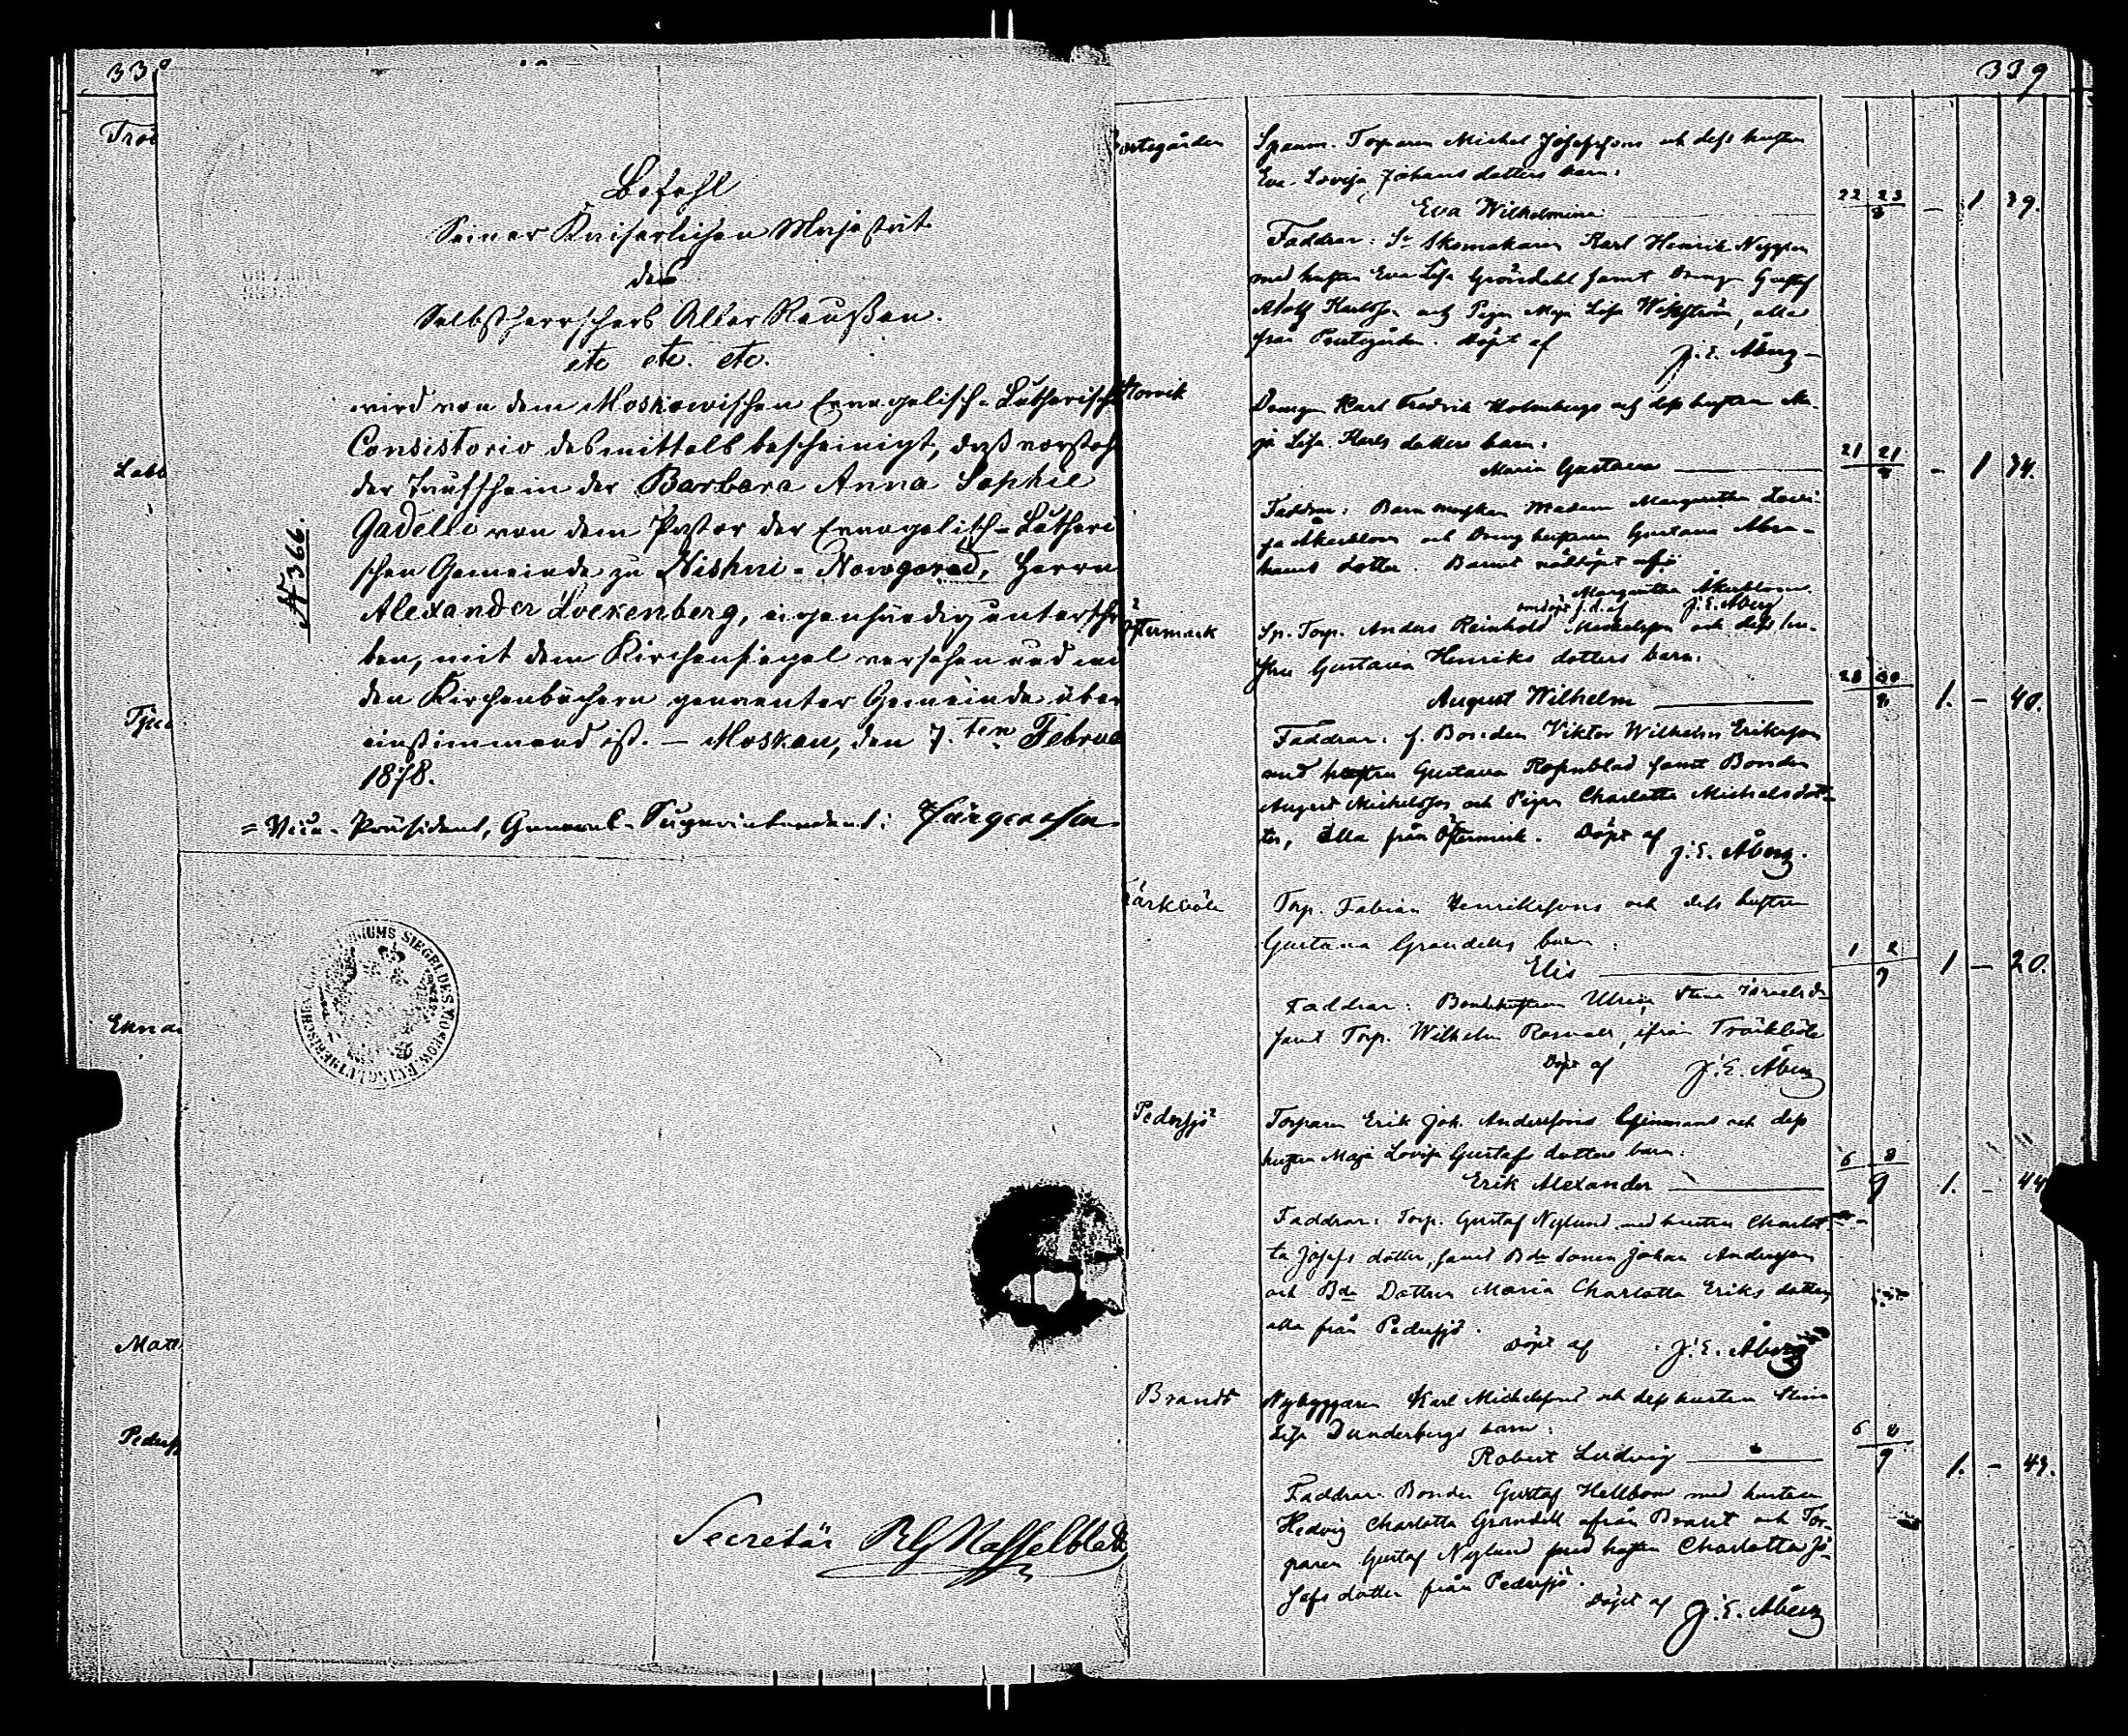 338
Befehl
Seiner Kaiserlichen Majestät
des
Selbstherrschers Aller Reußen.
etc etc. etc.
wird von dem Moskowischen Evangelisch-Lutherisch
Consistorio desmittelst bescheinigt, daß vorsteh
der Taufschein der Barbara Anna Sophie
Gadelli von dem Pastor der Evangelisch-Lutheri
schen Gemeinde zu Nishni-Nowgorod, Herrn
Alexander Loekenberg, eigenhändig unterschr
ben, mit dem Kirchensiegel versehen und mi
den Kirchenbüchern genannter Gemeinde über
einstimmend ist. – Moskau, den 7.ten Februa
1878.
= Vice-Präsident, General-Superintendent:
№ 366.
Secretär
Trös
Labb
Ekna
Matt
Pedersj
339
ostegården
Torparen Michel Josefssons och dess hustru
Eva Lovisa Johans dotters barn:
Eva Wilhelmina 22 23 8 – 1 39.
Faddrar: Skomakaren Karl Henrik
med hustru Eva Lisa Gröndahl samt Dreng Gustaf
Adolf Karlsson och Pigan Maja Lisa, alla
från. Döpt af
J. E. Åberg
Drengen Karl Fredrik Holmbergs och dess hustru Ma-
ja Lisa Karls dotters barn:
Maria Gustava 21 21 8 – 1 34.
Faddrar: Barnmorskan Madam Margaretha Lovi-
sa Åkerblom och Dreng hustrun Gustava Abra-
hams dotter. Barnet nöddöpt af
Margaretha Åkerblom.
J. E. Åberg
Sp. Torp. Anders Reinhold Michelsson och dess hu-
stru Gustava Henriks dotters barn:
August Wilhelm 28 30 8 1. – 40.
Faddrar: f. Bonden Viktor Wilhelm Eriksson
med hustru Gustava Rosenblad samt Bonden
August Michelsson och Pigan Charlotta Michelsdot-
ter, alla från Östermark. Döpt af
J. E. Åberg.
Torp. Fabian Henrikssons och dess hustru
Gustava Grandells barn:
Elis 1 2 9 1 – 20.
Faddrar: Bondehustrun Ulrica Stina Israelsdr
samt Torp. Wilhelm Rosvall, ifrån Träskböle
Döpt af J. E. Åberg
Pedersjö Torparen Erik Joh. Anderssons och dess
hustru Maja Lovisa Gustafs dotters barn:
Erik Alexander 6 8 9 1. – 44
Faddrar: Torp. Gustaf Nylund med hustru Charlot-
ta Josefs dotter, samt Bde sonen Johan Andersson
och Bde Dottren Maria Charlotta Eriks dotter
alla från Pedersjö.
Döpt af J. E. Åberg
Brandt Nybyggaren Karl Michelssons och dess hustru Stina
Lisa Dunderbergs barn:
Robert Ludvig 6 8 9 1. – 43.
Faddrar: Bonden Gustaf Hellbom med hustru
Hedvig Charlotta Grandell ifrån Brandt och Tor-
paren Gustaf Nylund med hustru Charlotta Jo-
sefs dotter från Pedersjö.
Döpt af J. E. Åberg